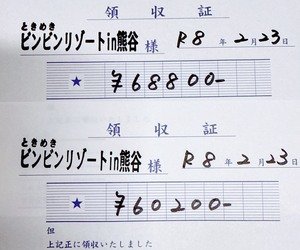 領収証
ときめき
ピンピンリゾートin熊谷 様 R8年2月23日
★ ¥68800-
領収証
ときめき
ピンピンリゾートin熊谷 様 R8年2月23日
★ ¥60200-
但
上記正に領収いたしました